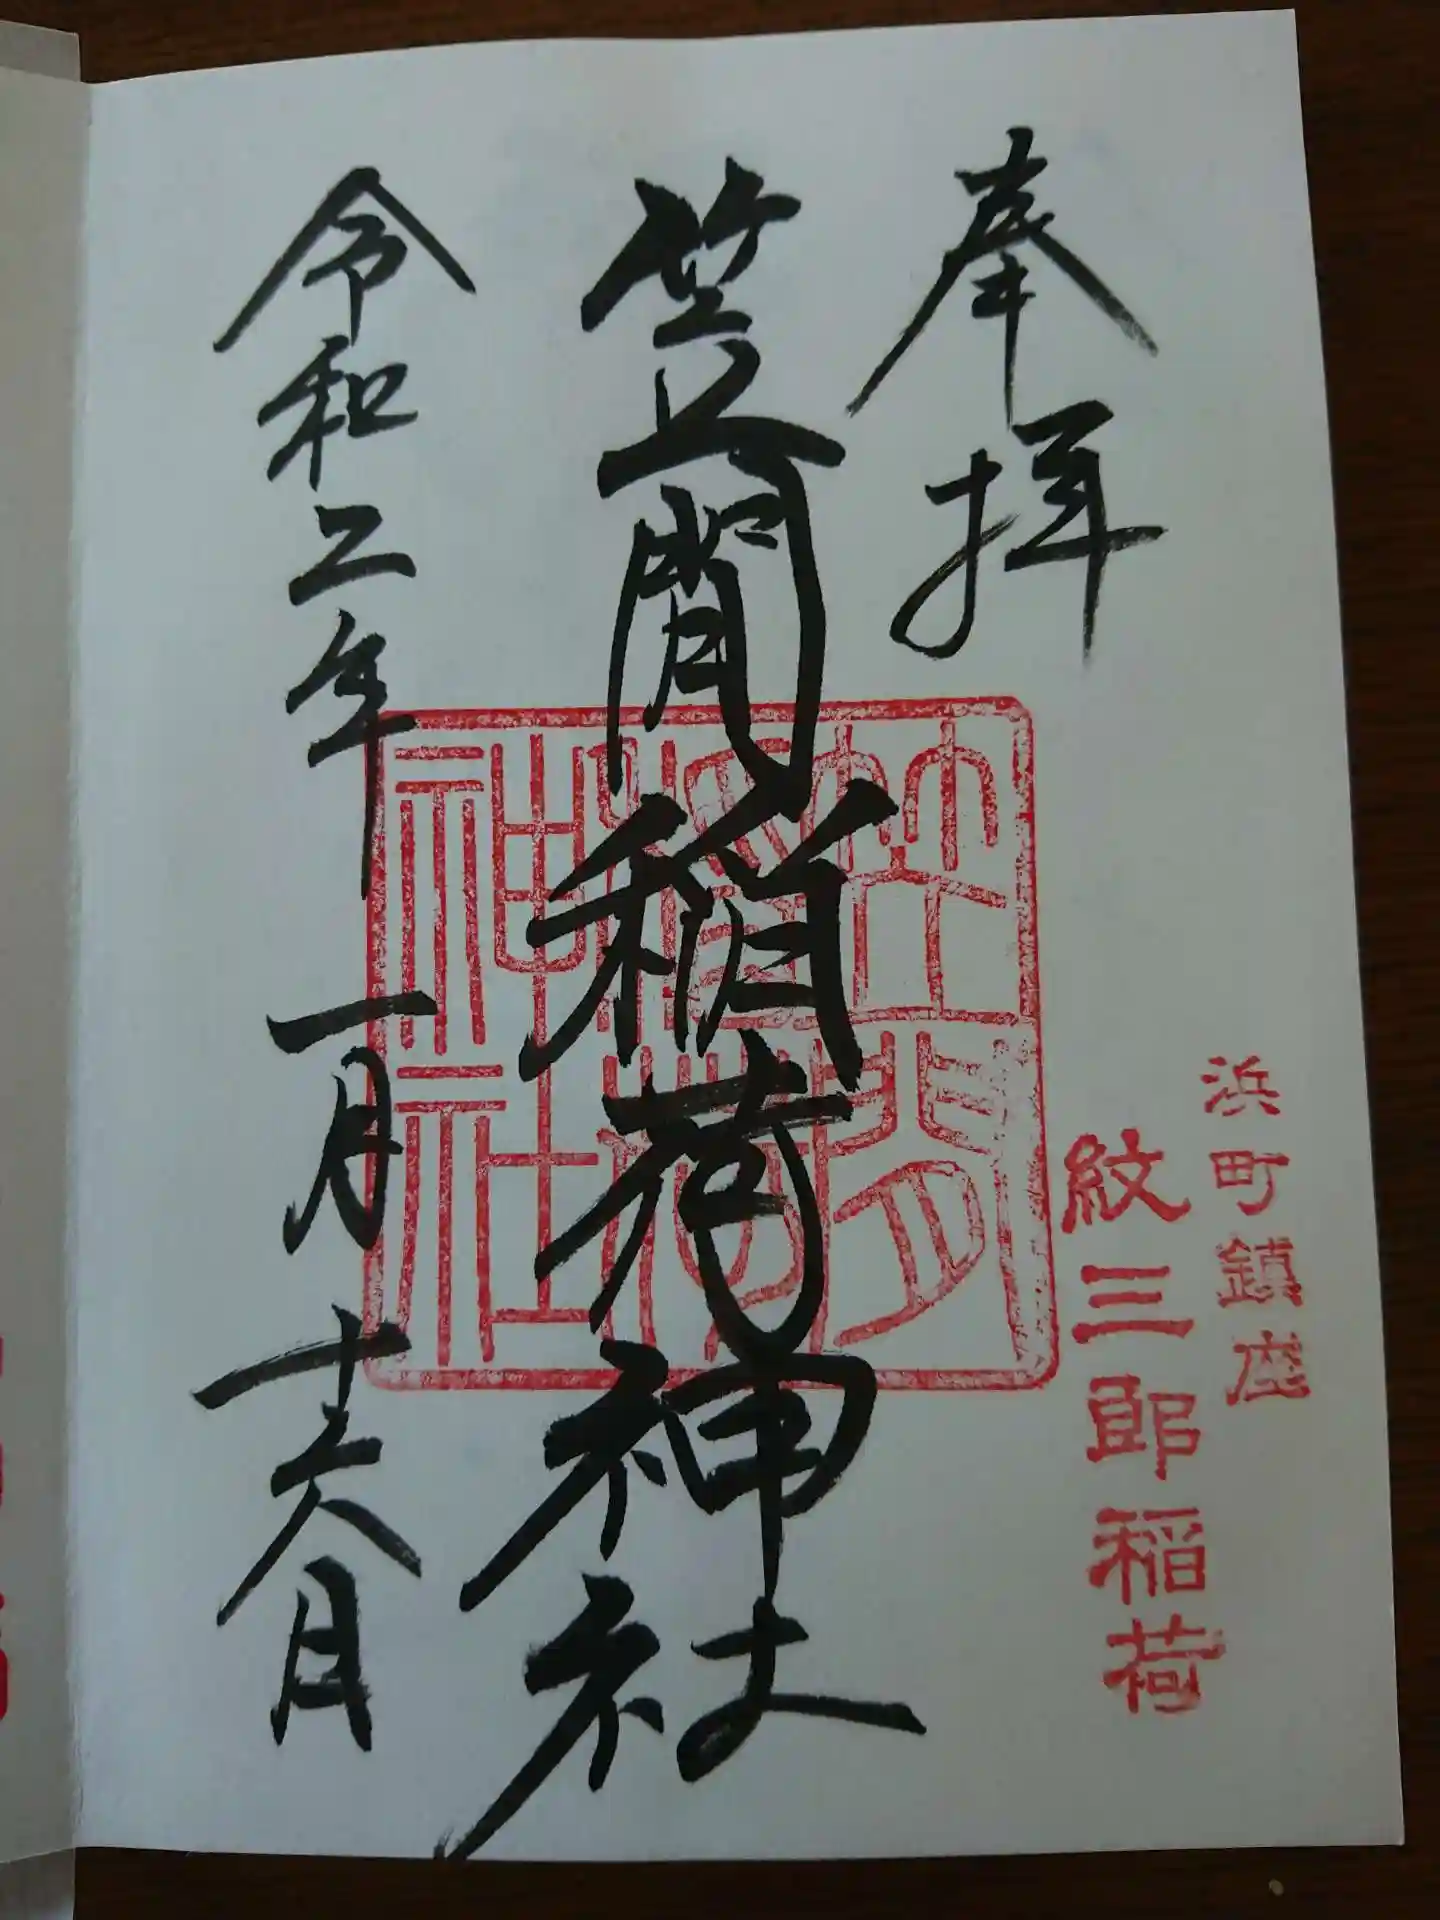 奉拝
浜町鎮座
紋三郎稲荷
笠間稲荷神社
笠間
稲荷
神社
令和二年一月十六日